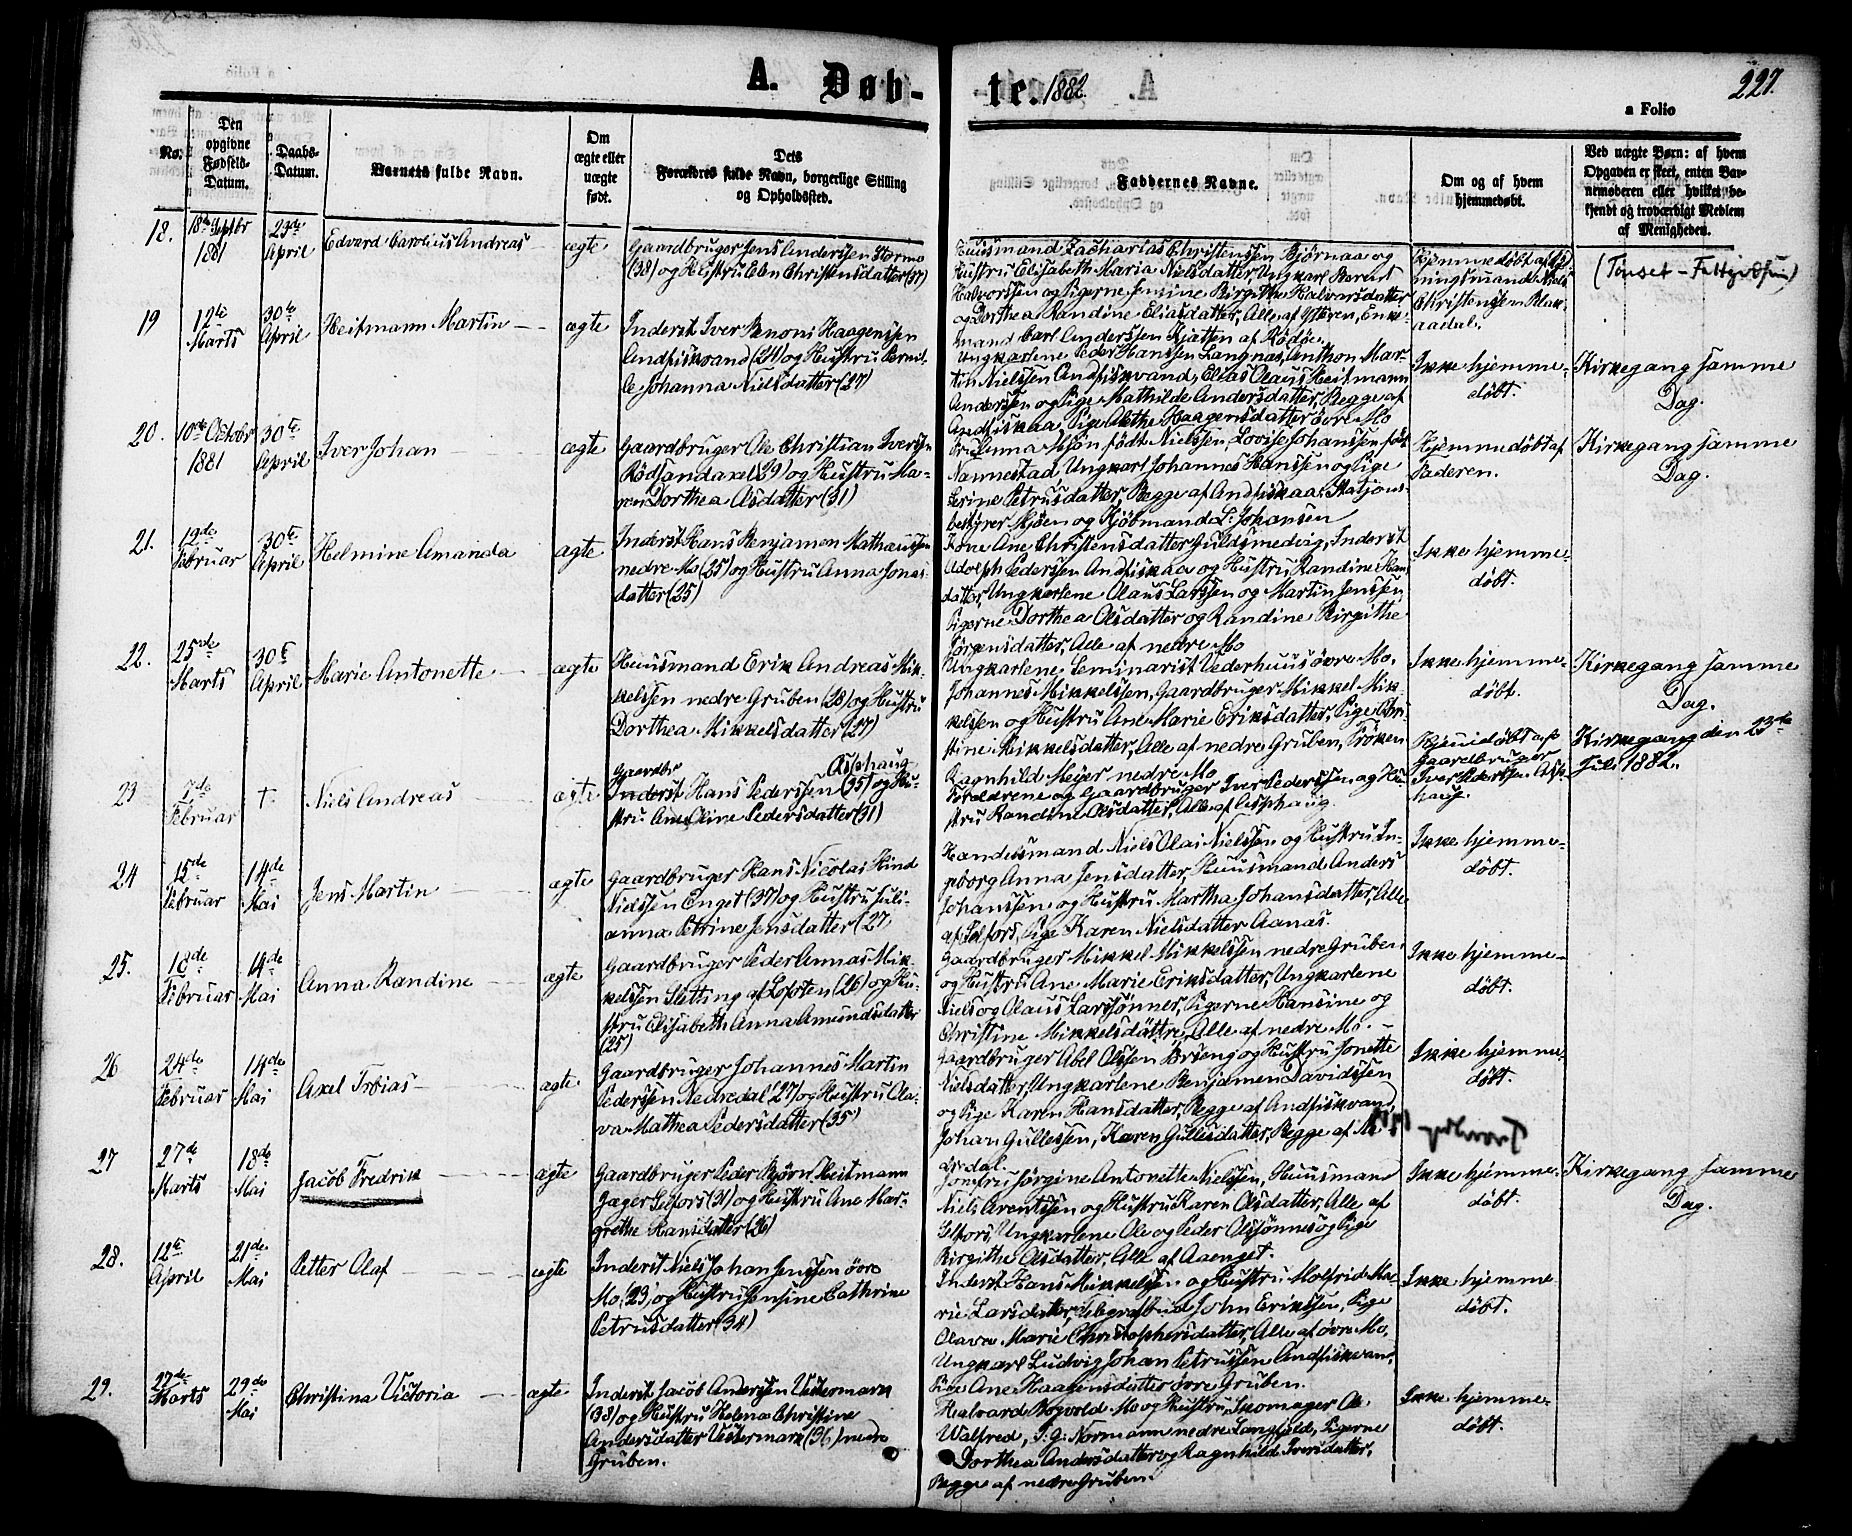 A. Døb-
te. 1882.
227.
a Folio
No.
Den
opgivne
Fødsels-
Datum.
Daabs-
Datum.
Barnets fulde Navn.
Om
ægte eller
uægte
født.
Dets
Forældres fulde Navn, borgerlige Stilling
og Opholdssted.
Faddernes Navne.
Om og af hvem
hjemmedøbt.
Ved uægte Børn: af hvem
Opgaven er skeet, enten Bar-
nemoderen eller hvilket be-
kjendt og troværdigt Medlem
af Menigheden.
18.
18de Septbr
1881
29de
April
Edvard Carolius Andreas
ægte
Gaardbruger Jens Anderssen Stormo
(38) og Hustru Elen Christensdatter (37)
Huusmand Zacharias Christenssen Bjørnaa og
Hustru Elisabeth Maria Nielsdatter, Ungkarl Barent
Halvorssen og Pigerne Jensine Birgithe Halvorsdatter
og Dorthea Randine Eliasdatter, Alle af Ytteren, Enke-
mand Carl Anderssen Kjatten af Rödöe
Hjemmedøbt af
Christensen
19
12te
Marts
30te
April
Heitmann Martin
ægte
Inderst Iver Benoni Haagenssen
Andfiskvand (24) og Hustru Pernil-
le Johanna Nielsdatter (27)
Ungkarlene Peder Hanssen Langnæs, Anthon Mar-
tin Nielssen Andfiskvand, Elias Olaus Heitmann
Anderssen og Pige Mathilde Andersdatter, Begge af
Andfiskaa, Pige Alethe Haagensdatter övre Mo
Ikke hjemme-
döbt.
Kirkegang samme
Dag.
20.
10de Octobr
1881
30te
April
Iver Johan
ægte
Gaardbruger Ole Christian Iverssen
(29) og Hustru Ma-
ren Dorthea Olsdatter (31)
født Nielssen, Lovise Johanssen født
Nannestad, Ungkarl Johannes Hanssen og Pige
Serine Petrusdatter, Begge af Andfiskaa, Stations-
bestyrer Mjöen og Kjöbmand L. Johansen
Hjemmedøbt af
Faderen.
Kirkegang samme
Dag.
21.
12de
Februar
30te
April
Helmine Amanda
ægte
Inderst Hans Benjamen Mathæussen
nedre Mo (25) og Hustru Anna Jonas-
datter (25)
Kone Ane Christensdatter Guldsmedvig, Inderst
Adolph Pedersen Andfiskaa og Hustru Randine Han-
datter, Ungkarlene Olaus Larssen og Martin Jenssen
Pigerne Dorthea Olsdatter og Randine Birgithe
Jörgensdatter, Alle af nedre Mo
Ikke hjemme-
döbt.
22.
25de
Marts
30te
April
Marie Antonette
ægte
Huusmand Erik Andreas Mik-
kelssen nedre Gruben (28) og Hustru
Dorthea Mikkelsdatter (27)
Ungkarlene, Seminarist Vederhuus övre Mo,
Johannes Mikkelssen, Gaardbruger Mikkel Mik-
kelssen og Hustru Ane Marie Eriksdatter, Pige Chri-
stine Mikkelsdatter, Alle af nedre Gruben, Fröken
Ragnhild Meyer nedre Mo
Ikke hjemme-
döbt.
Kirkegang samme
Dag.
23
7de
Februar
†
Niels Andreas
ægte
Gaardbr Asphaug
Inderst Hans Pederssen (35) og Hu-
stru Ane Oline Pedersdatter (31)
Forældrene og Gaardbruger Iver Pederssen og Hu-
stru Randine Olsdatter, Alle af Asphaug.
Hjemmedøbt af
Gaardbruger
Iver Pederssen Asp-
haug.
Kirkegang den 23de
Juli 1882.
24
15de
Februar
14de
Mai
Jens Martin
ægte
Gaardbruger Hans Nicolai Hind
Nielssen Enget (37) og Hustru Juli-
anna Petrine Jensdatter (27)
Handelsmand Niels Olai Nielssen og Hustru In-
geborg Anna Jensdatter, Huusmand Anders
Johanssen og Hustru Martha Johansdatter, Alle
af Selfors, Pige Karen Nielsdatter Aanæs.
Ikke hjemme-
döbt.
25.
18de
Februar
14de
Mai
Anna Randine
ægte
Gaardbruger Peder Annas Mik-
kelssen Sletting af Lofoten (26) og Hu-
stru Elisabeth Anna Amundsdatter
(25)
Gaardbruger Mikkel Mikkelssen nedre Gruben
og Hustru Ane Marie Eriksdatter, Ungkarlene
Niels og Olaus Larssönner, Pigerne Hansine og
Christine Mikkelsdöttre, Alle af nedre Mo.
Ikke hjemme-
döbt.
26
24de
Februar
14de
Mai
Axel Tobias
ægte
Gaardbruger Johannes Martin
Pederssen Nedredal (27) og Hustru Ola-
va Mathea Pedersdatter (35)
Gaardbruger Abel Olssen Brseng og Hustru Jonette
Nielsdatter, Ungkarlene Benjamen Davidssen
og Pige Karen Hansdatter, Begge af Andfiskvand,
Johan Gullessen, Karen Gullesdatter, Begge af
Ikke hjemme-
döbt.
27
27de
Marts
18de
Mai
Jacob Fredrik
ægte
Gaardbruger Peder Björn Heitmann
Jager Selfors (31) og Hustru Ane Mar-
grethe Hansdatter (26)
Jomfru Jörgine Antonette Nielssen, Huusmand
Niels Arentssen og Hustru Karen Olsdatter, Alle af
Selfors, Ungkarlene Ole og Peder Olssönner og Pige
Birgithe Olsdatter, Alle af Aaenget.
Ikke hjemme-
döbt.
Kirkegang samme
Dag.
28.
12te
April
21de
Mai
Petter Olaf
ægte
Inderst Niels Johan Jenssen övre
Mo (23) og Hustru Jensine Cathrine
Petrusdatter (34)
Inderst Hans Mikkelssen og Hustru Molfrid Ma-
rie Larsdatter, Telegrafbud John Erikssen, Pige
Olava Marie Christophersdatter, Alle af övre Mo,
Ungkarl Ludvig Johan Petrussen Andfiskvand,
Pige Ane Haagensdatter övre Gruben.
Ikke hjemme-
döbt.
29.
27de
Marts
29de
Mai
Christina Victoria
ægte
Inderst Jacob Andersen Vestermark
(38) og Hustru Helena Christine
Andersdatter Vestermark (36) nedre
Gruben.
Halvard Mo og Hustru, Skomager Ole
Walfred, J. G. Normann nedre Langfjeld, Pigerne
Dorthea Andersdatter og Ragnhild Iversdatter,
Begge af nedre Gruben.
Ikke hjemme-
döbt.